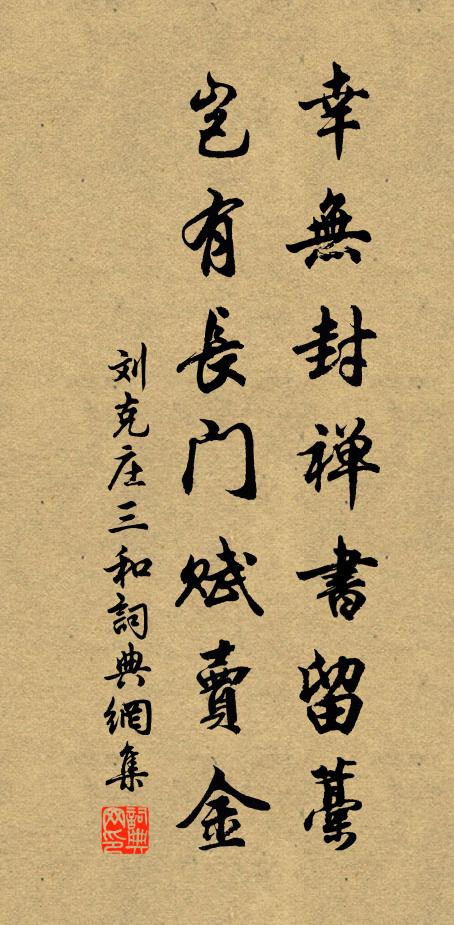 幸無封禅書留藁
岂有長门赋賣金
刘克庄三和詞典網集
詞典网印